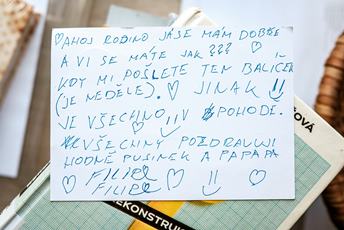 ♡ AHOJ RODINO JÁ SE MÁM DOBŘE
A VI SE MÁTE JAK ??? ♡
KDY MI POŠLETE TEN BALÍČEK
(JE NEDĚLE). ♡ JINAK
JE VŠECHNO V POHODĚ.
VŠECHNY POZDRAVUJI
HODNĚ PUSINEK A PAPAPA
FILIP
FILIP
OVÁ
EKONSTRU